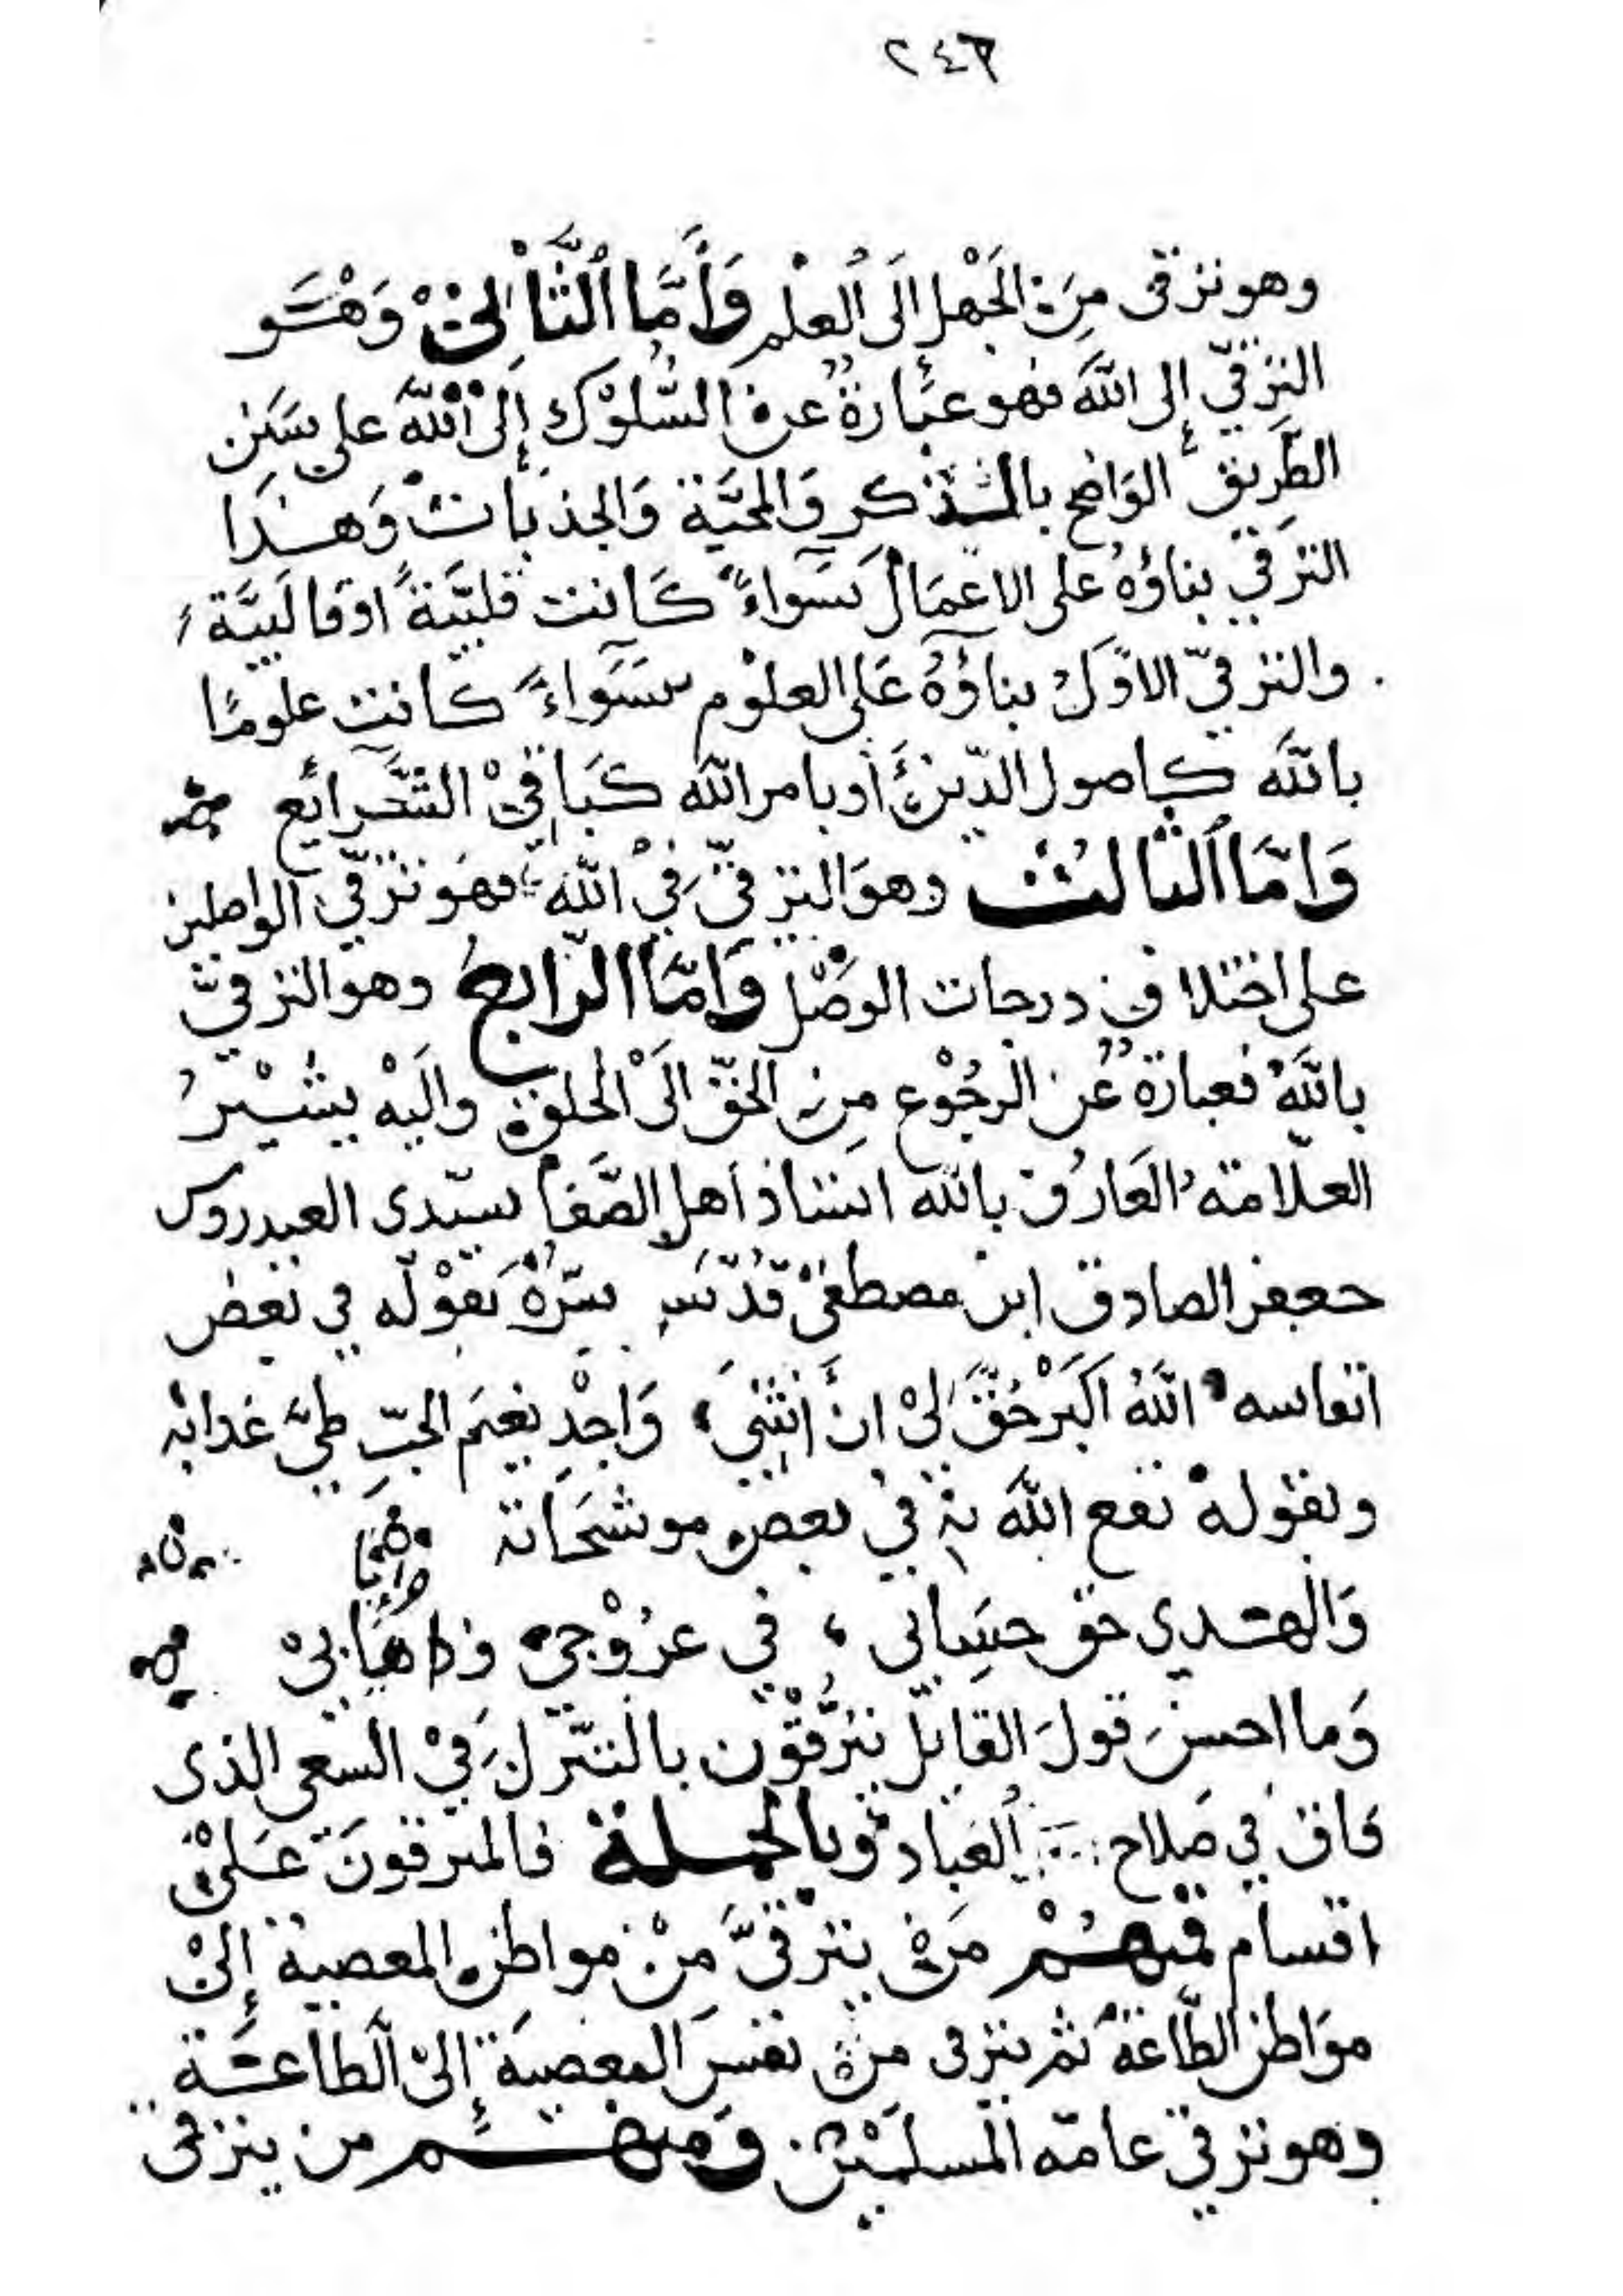 ٢٤٦
وهو ترقى مِنَ الجَهْل اِلَى العِلْم وَأَمَّا الثَّانِيْ وَهْوَ
الترقّي إلى اللهَ فهو عبَارةٌ عن السُّلوْك إِلىْ اللهَ على سَنن
الطَّرِيق الوَاضح بالذكر وَالمحبَّة وَالجذبات وَهذَا
الترقي بناؤهُ على الاعْمَال سَوَاءً كَانت قلبيَّةً اوقالَبيَّة
والترقيّ الاوّلُ بناؤهُ عَلى العلوْم سَوَاءً كانت علومًا
باللهَ كاصول الدّينْ أوبامر الله كبَاقيْ الشَّرائع
وَامَّا الثالثْ وهوَ الترقيّ فيْ اللهِ فهوَ ترقّي الواصلين
على اختلاف درجات الوَصْل وَامَّا الرّابعُ وهو الترقيّ
باللهَ فعبارةٌ عن الرجُوْع مِن الحقّ الَىْ الخلق واليْه يشيْرُ
العلّامة العَارف بالله استاذ أهل الصَّفا سيّدى العيدروس
جعفر الصادق ابن مصطفىْ قدّس سرّهُ بقوْله في بعض
انفاسه اللهُ اكبَرْ حُقَّ لىْ انْ أنثنيَ وَاجْدِ بغيَم الحبّ طيَّ
وبقولهْ نفع اللهَ بهْ فيْ بعض موشحَاته
وَالهدي حق حسَابى في عرُوْجيْ وذهابيْ
وَما احسنَ قولَ القايل يترَّقوْن بالتنزل فيْ السعى الذى
فاق في صلاح العباد وبالجملة فالمترقونَ عَلىْ
اقسام فمنهُمْ مَنْ يترقىَّ مِنْ مواطن المعصية إلىْ
موَاطن الطَّاعة ثم يترقى منْ نفسَ المعصيَة إلىْ الطاعَة
وهو ترقيْ عامّه المسلميْن وَمنهمْ من يترقى